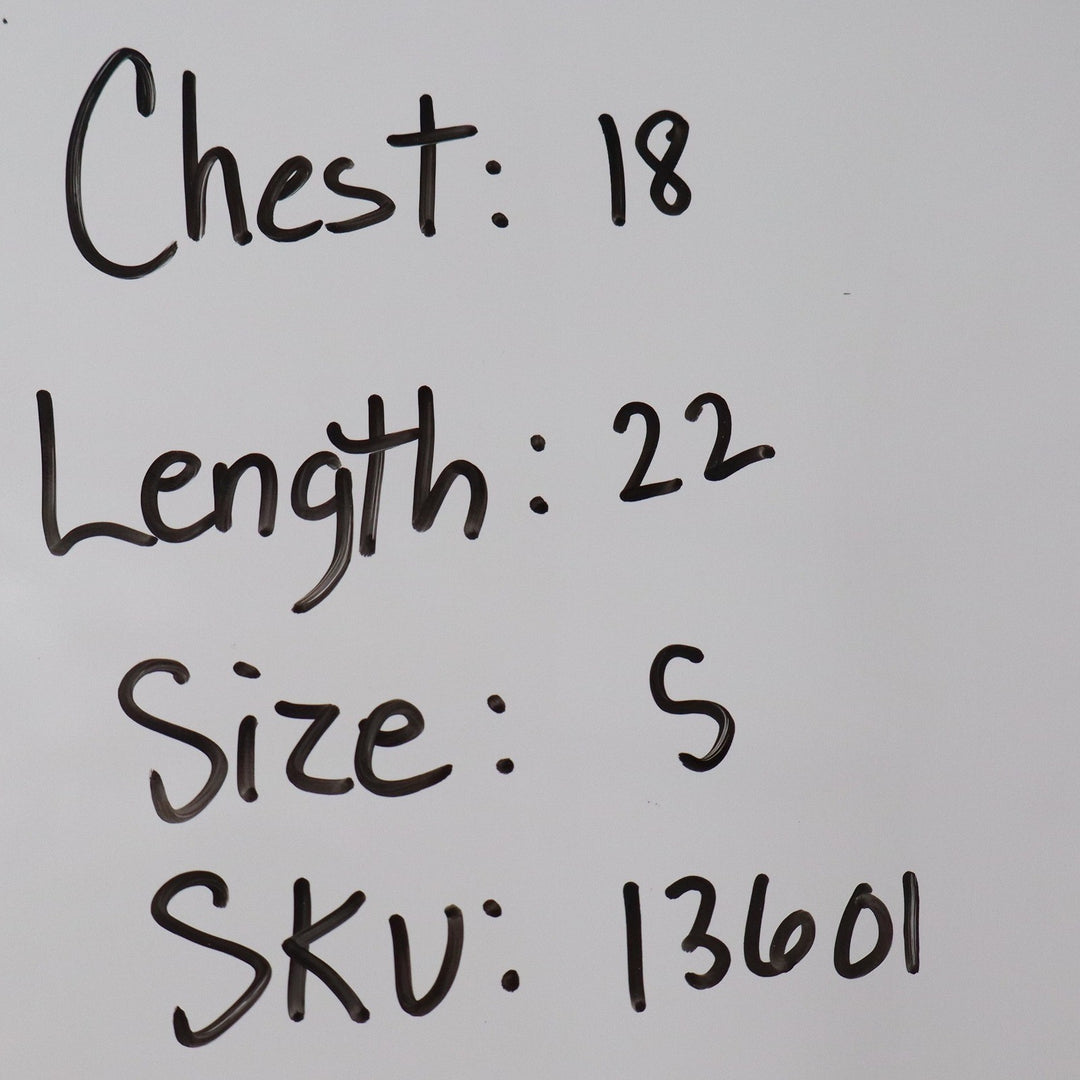 Chest: 18
Length: 22
Size: S
SKU: 13601